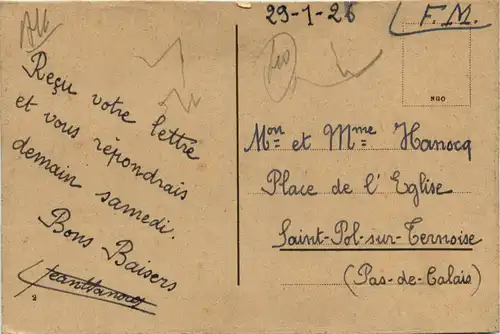 29-1-26
F.M.
NGO
Reçu votre lettre
et vous répondrais
demain samedi.
Bons Baisers
Jean Hanocq
Mon et Mme Hanocq
Place de l'Eglise
Saint-Pol-sur-Ternoise
(Pas-de-Calais)